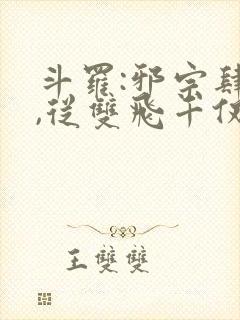 斗羅:邪宗肆
,從雙飛千仞
王雙雙